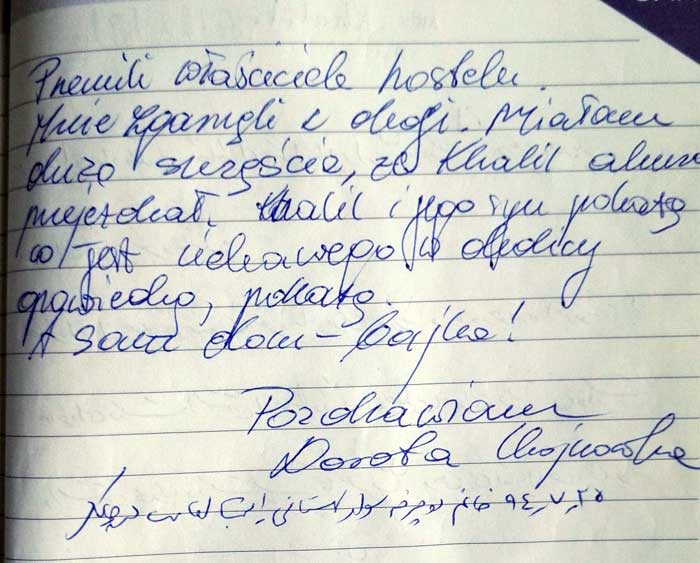 Przemili właściciele hostelu.
Mnie zgarnęli z drogi. Miałam
dużo szczęście, że Khalil akurat
przejeżdżał. Khalil i jego syn pokażą
co jest ciekawego w okolicy
opowiedzą, pokażą.
A sam dom – bajka!
Pozdrawiam
Dorota Chojnowska
٩٤,٧,٢٥ خانم